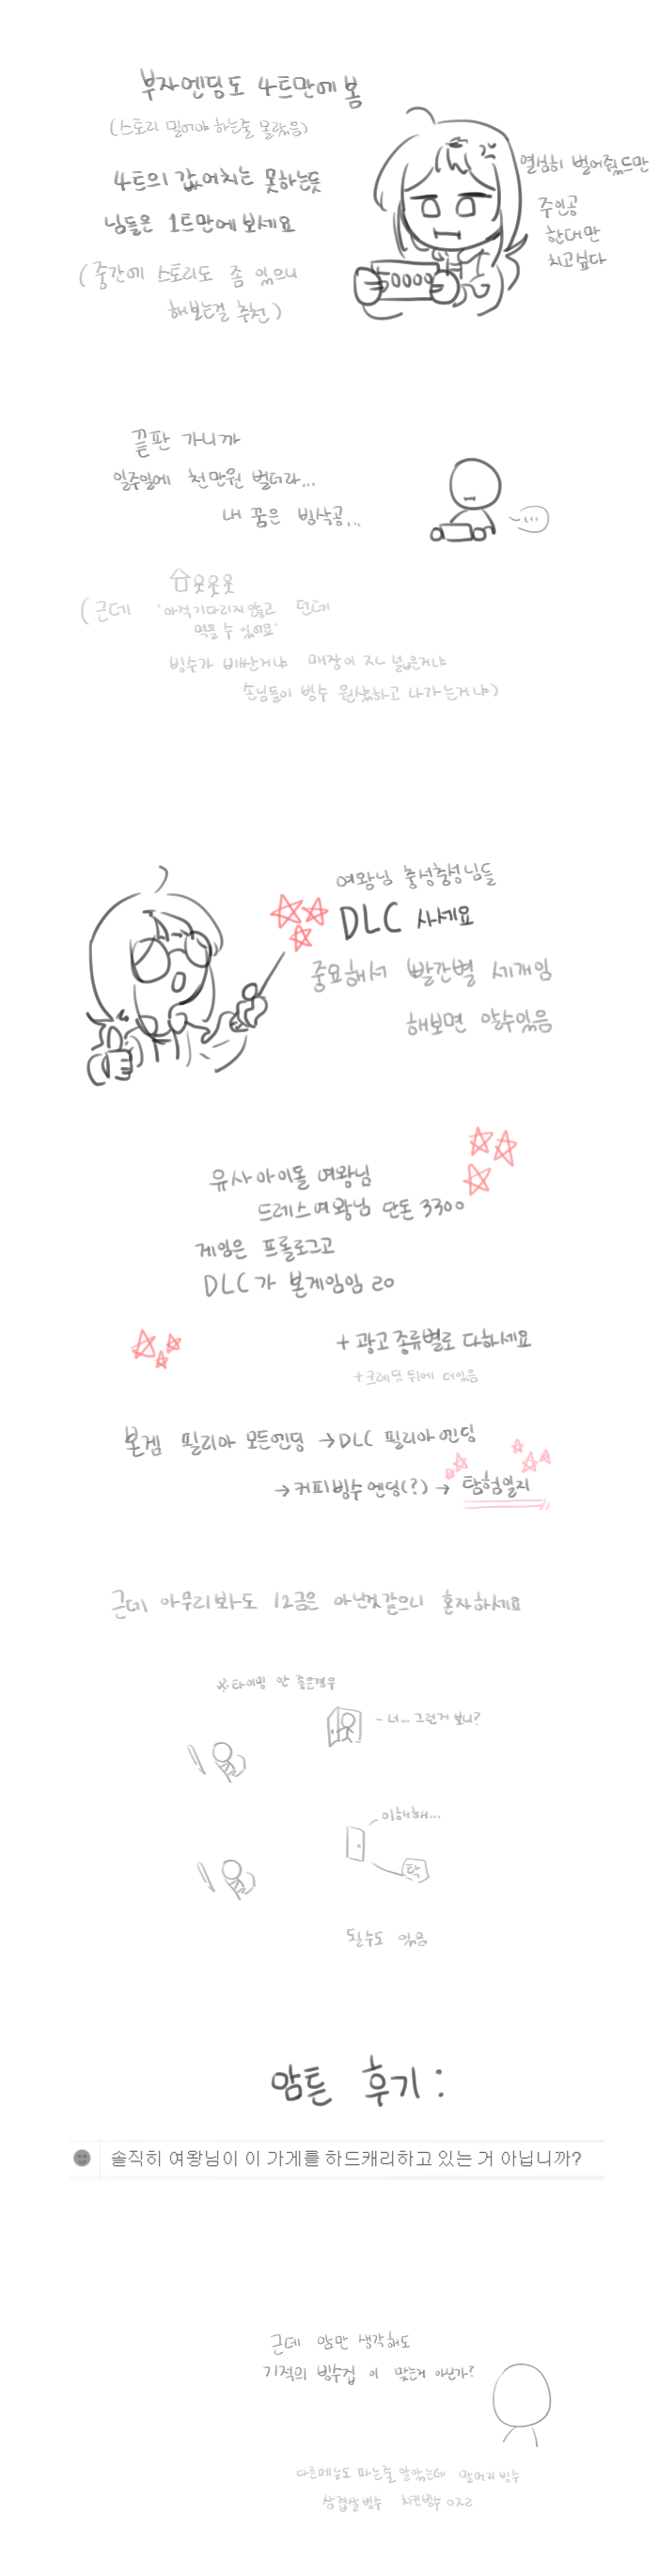 부자엔딩도 4트만에 봄
(스토리 밀어야 하는줄 몰랐음)
4트의 값어치는 못하는듯
님들은 1트만에 보세요
(중간에 스토리도 좀 있으니
해보는걸 추천)
열심히 벌어줬드만
주인공
한대만
치고싶다
끝판 가니까
일주일에 천만원 벌더라...
내 꿈은 빙삭공...
...
(근데 '아걱기다리지않고 먹을 수 있어요' 던데
빙수가 비싼거냐 매장이 ㅈㄴ 넓은거냐
손님들이 빙수 원샷하고 나가는거냐)
여왕님 충성충성님들
DLC 사세요
중요해서 빨간별 세개임
해보면 알수있음
유사아이돌 여왕님
드레스여왕님 단돈 3300
게임은 프롤로그고
DLC가 본게임임 ㄹㅇ
+ 광고 종류별로 다하세요
+크레딧 뒤에 더있음
본겜 필리아 모든엔딩 → DLC 필리아 엔딩
→ 커피빙수 엔딩(?) → 탐험일지
근데 아무리봐도 12금은 아닌것같으니 혼자하세요
※타이밍 안 좋은경우
- 너... 그런거 보니?
이해해...
탁
될수도 있음
암튼 후기:
솔직히 여왕님이 이 가게를 하드캐리하고 있는 거 아닙니까?
근데 암만 생각해도
기적의 빙수집 이 맞는거 아닌가?
다른메뉴도 파는줄 알았는데 빙수
삼겹살빙수 치킨빙수